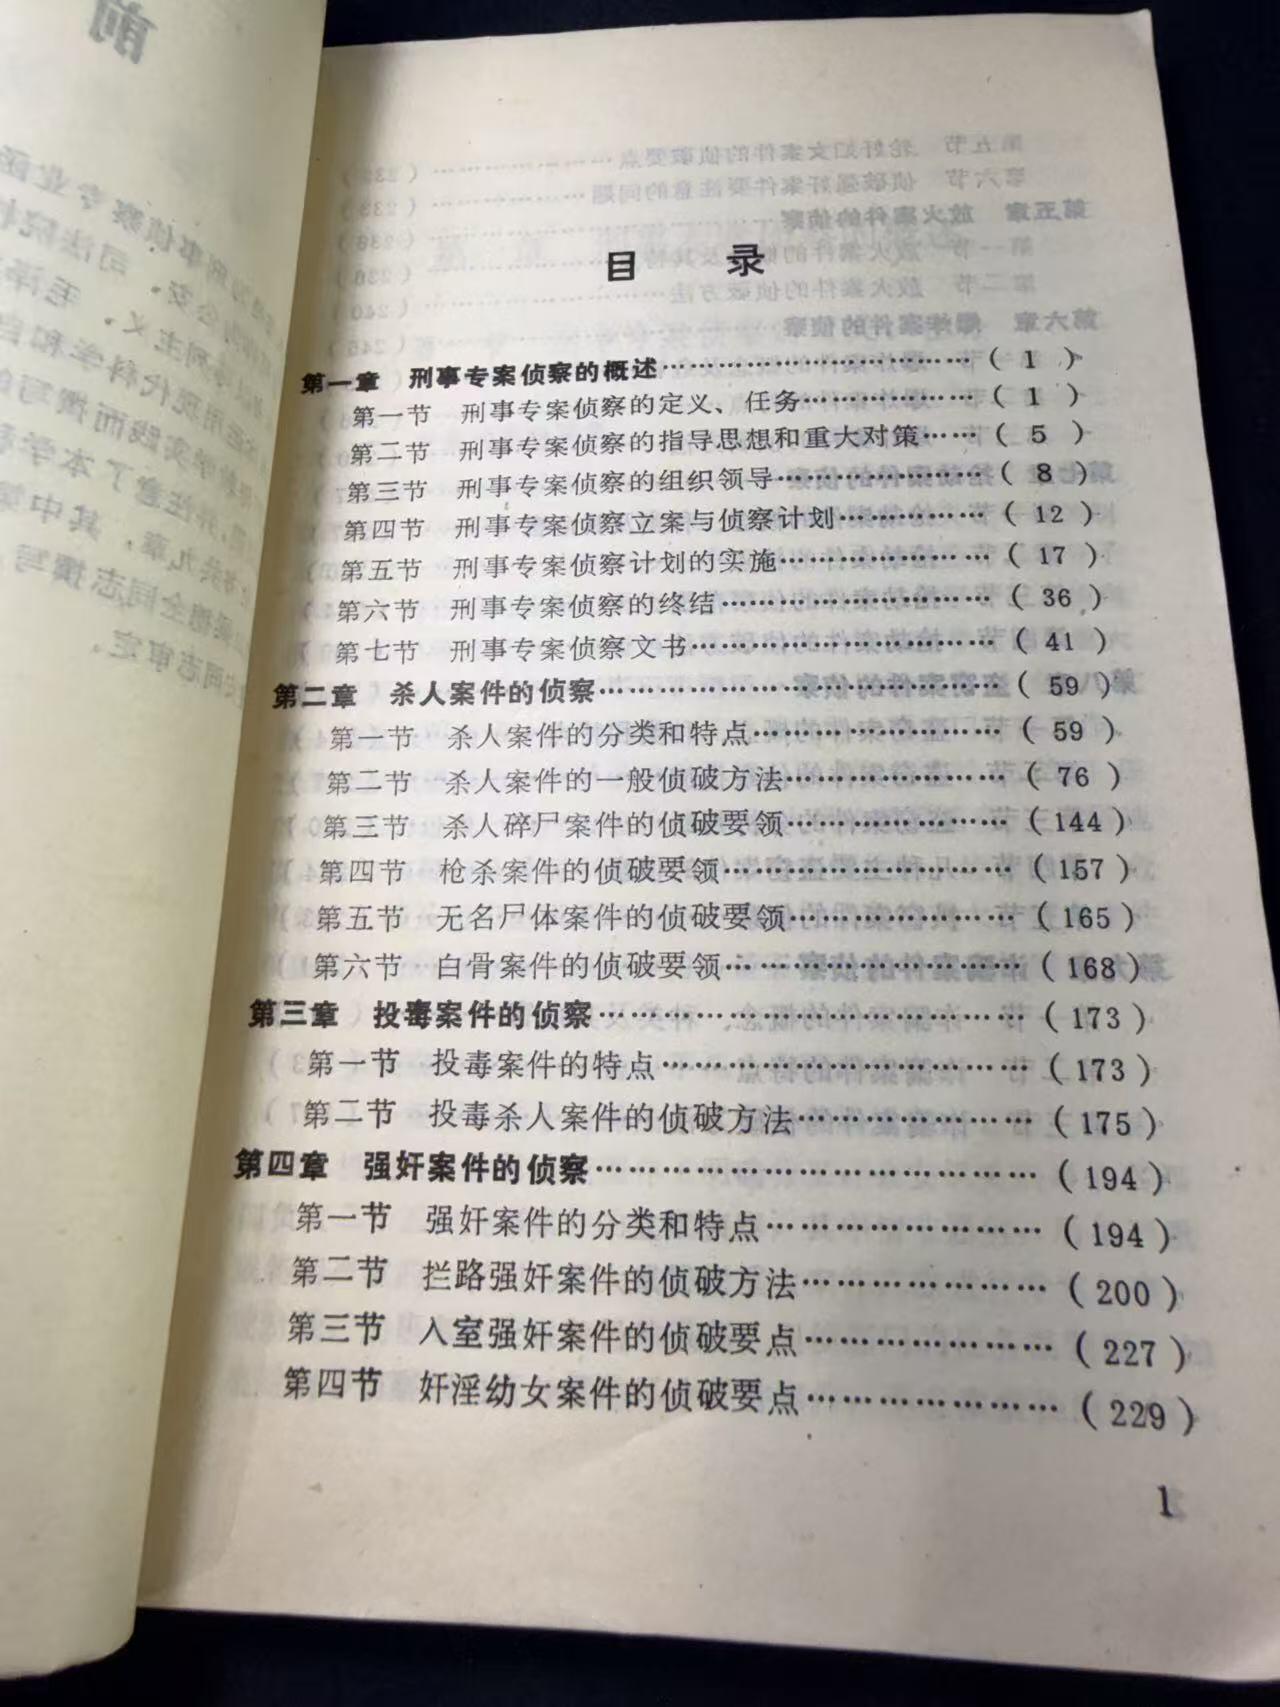 目 录
第一章 刑事专案侦察的概述……………………………( 1 )
第一节 刑事专案侦察的定义、任务………………( 1 )
第二节 刑事专案侦察的指导思想和重大对策……( 5 )
第三节 刑事专案侦察的组织领导…………………( 8 )
第四节 刑事专案侦察立案与侦察计划……………( 12 )
第五节 刑事专案侦察计划的实施…………………( 17 )
第六节 刑事专案侦察的终结………………………( 36 )
第七节 刑事专案侦察文书…………………………( 41 )
第二章 杀人案件的侦察…………………………………( 59 )
第一节 杀人案件的分类和特点……………………( 59 )
第二节 杀人案件的一般侦破方法…………………( 76 )
第三节 杀人碎尸案件的侦破要领…………………( 144 )
第四节 枪杀案件的侦破要领………………………( 157 )
第五节 无名尸体案件的侦破要领…………………( 165 )
第六节 白骨案件的侦破要领………………………( 168 )
第三章 投毒案件的侦察…………………………………( 173 )
第一节 投毒案件的特点……………………………( 173 )
第二节 投毒杀人案件的侦破方法…………………( 175 )
第四章 强奸案件的侦察…………………………………( 194 )
第一节 强奸案件的分类和特点……………………( 194 )
第二节 拦路强奸案件的侦破方法…………………( 200 )
第三节 入室强奸案件的侦破要点…………………( 227 )
第四节 奸淫幼女案件的侦破要点…………………( 229 )
1